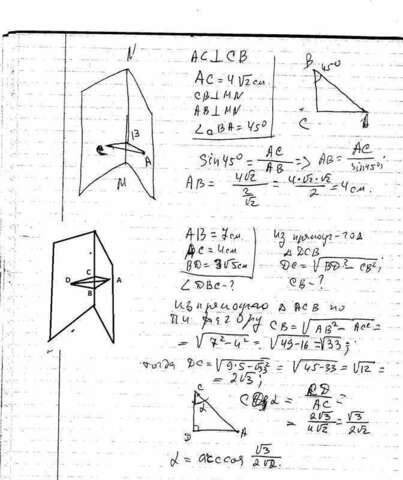 N
AC⊥CB
AC=4√2 см
CB⊥MN
AB⊥MN
∠aBA=45°
B 45°
C
B
A
M
Sin45°=AC/AB=>AB=AC/sin45°;
AB=4√2/=4·√2·√2/2=4см.
AB=7см.
C=4см
BD=3√5см
∠DBC-?
из прямоуг-год
ΔDCB
DC=√BD²-CB²;
CB-?
D C A
B
из прямоуг ΔACB по
Пифагору CB=√AB²-AC²=
=√7²-4²=√49-16=√33;
тогда DC=√9·5-√33²=√45-33=√12=
=2√3;
C
α
D A
α=/AC=
=2√3/4√2=√3/2√2
α=arccos √3/2√2.